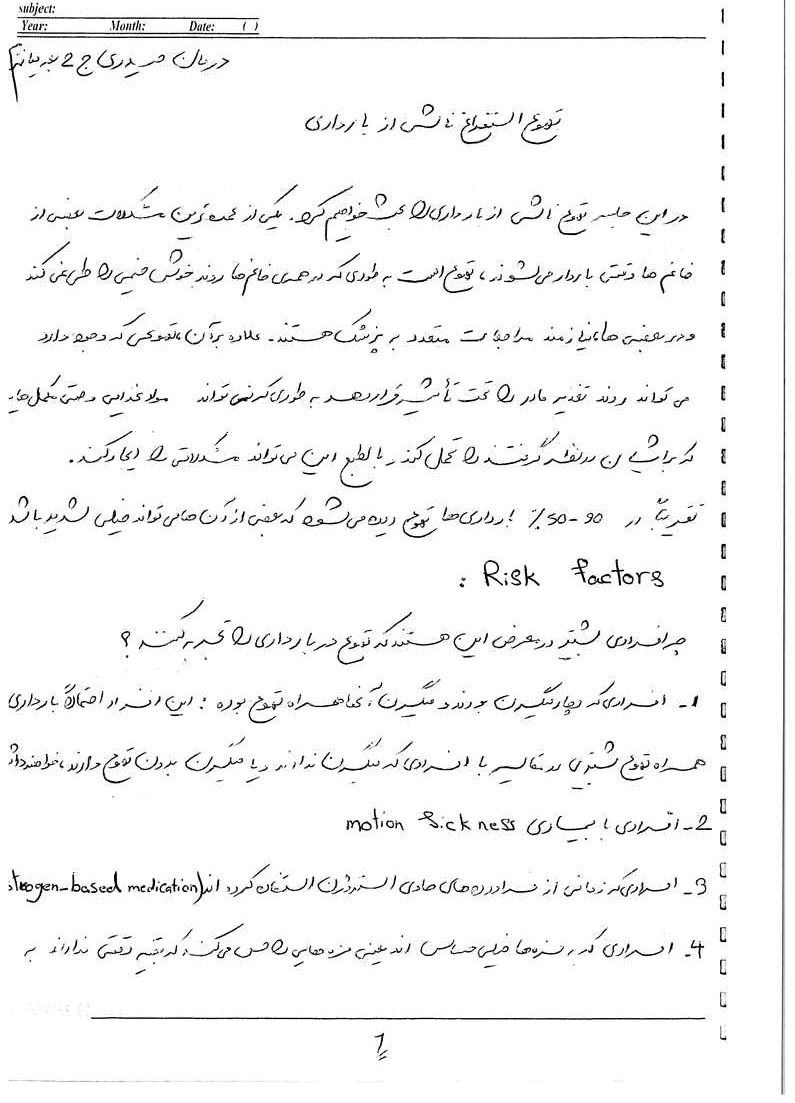 subject:
Year: Month: Date: ( )
درمان حیدری ج 2
تهوع استفراغ ناشی از بارداری
در این جلسه تهوع ناشی از بارداری را بحث خواهیم کرد. یکی از عمده‌ترین مشکلات بعضی از
خانم ها وقتی باردار می‌شوند، تهوع است به طوری که در همه‌ی خانم ها روند خوش خیمی را طی نمی کند
و در بعضی ها، نیازمند مراجعات متعدد به پزشک هستند. علاوه بر آن، تهوعی که وجود دارد
می تواند روند تغذیه مادر را تحت تأثیر قرار دهد به طوری که نمی تواند مواد غذایی و حتی مکمل هایی
که برایشان در نظر گرفتند را تحمل کند و بالطبع این می تواند مشکلاتی را ایجاد کند.
تقریباً در 50-90 % بارداری ها تهوع دیده می‌شود که بعضی از آن ها می تواند خیلی شدید باشد
Risk factors :
چه افرادی بیشتر در معرض این هستند که تهوع در بارداری را تجربه کنند ؟
1- افرادی که دچار میگرن بودند و میگرن آنها همراه تهوع بوده : این افراد احتمالاً بارداری
همراه تهوع بیشتری در مقایسه با افرادی که میگرن ندارند و یا میگرن بدون تهوع دارند، خواهند داشت
2- افرادی با بیماری motion sickness
3- افرادی که زمانی از فراورده های حاوی استروژن استفاده کرده اند (strogen-based medication
4- افرادی که به مزه‌ها خیلی حساس اند یعنی مزه هایی را حس می‌کنند که بقیه دقتی ندارند به
1